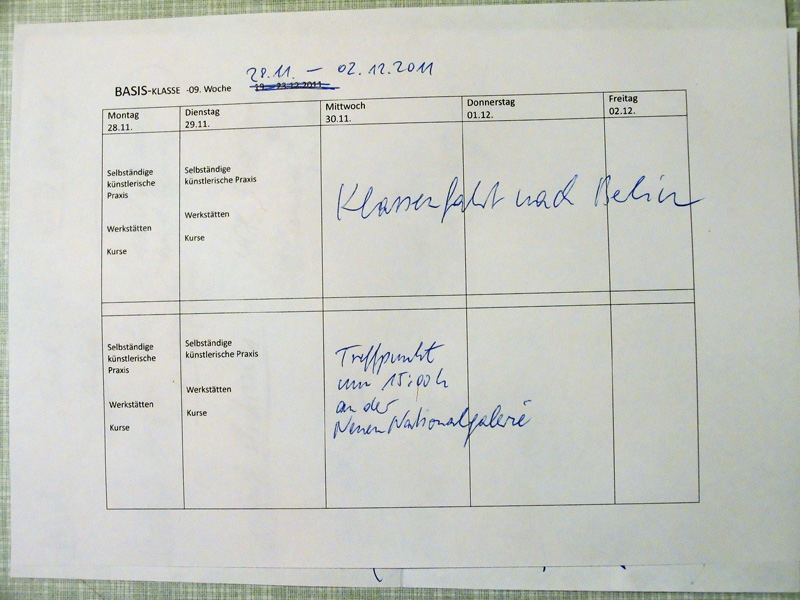 28.11. – 02.12.2011
BASIS-KLASSE -09. Woche
Montag
28.11.
Dienstag
29.11.
Mittwoch
30.11.
Donnerstag
01.12.
Freitag
02.12.
Selbständige
künstlerische
Praxis
Werkstätten
Kurse
Selbständige
künstlerische Praxis
Werkstätten
Kurse
Klassenfahrt nach Berlin
Selbständige
künstlerische
Praxis
Werkstätten
Kurse
Selbständige
künstlerische Praxis
Werkstätten
Kurse
Treffpunkt
um 15:00h
an der
Neuen Nationalgalerie